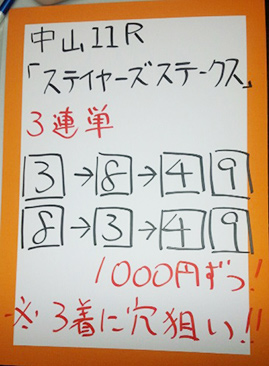 中山11R
「ステイヤーズステークス」
3連単
3→8→4 9
8→3→4 9
1000円ずつ!
※3着に穴狙い!!